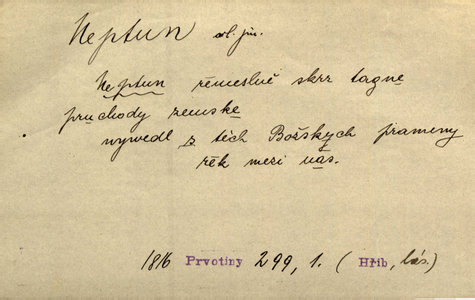 Neptun vl. jm.
Neptun řemeslně skrz tagne
pruchody zemske
wywedl z těch Božských prameny
řék mezi nás.
1816 Prvotiny 299, 1. (Hřib, bás.)